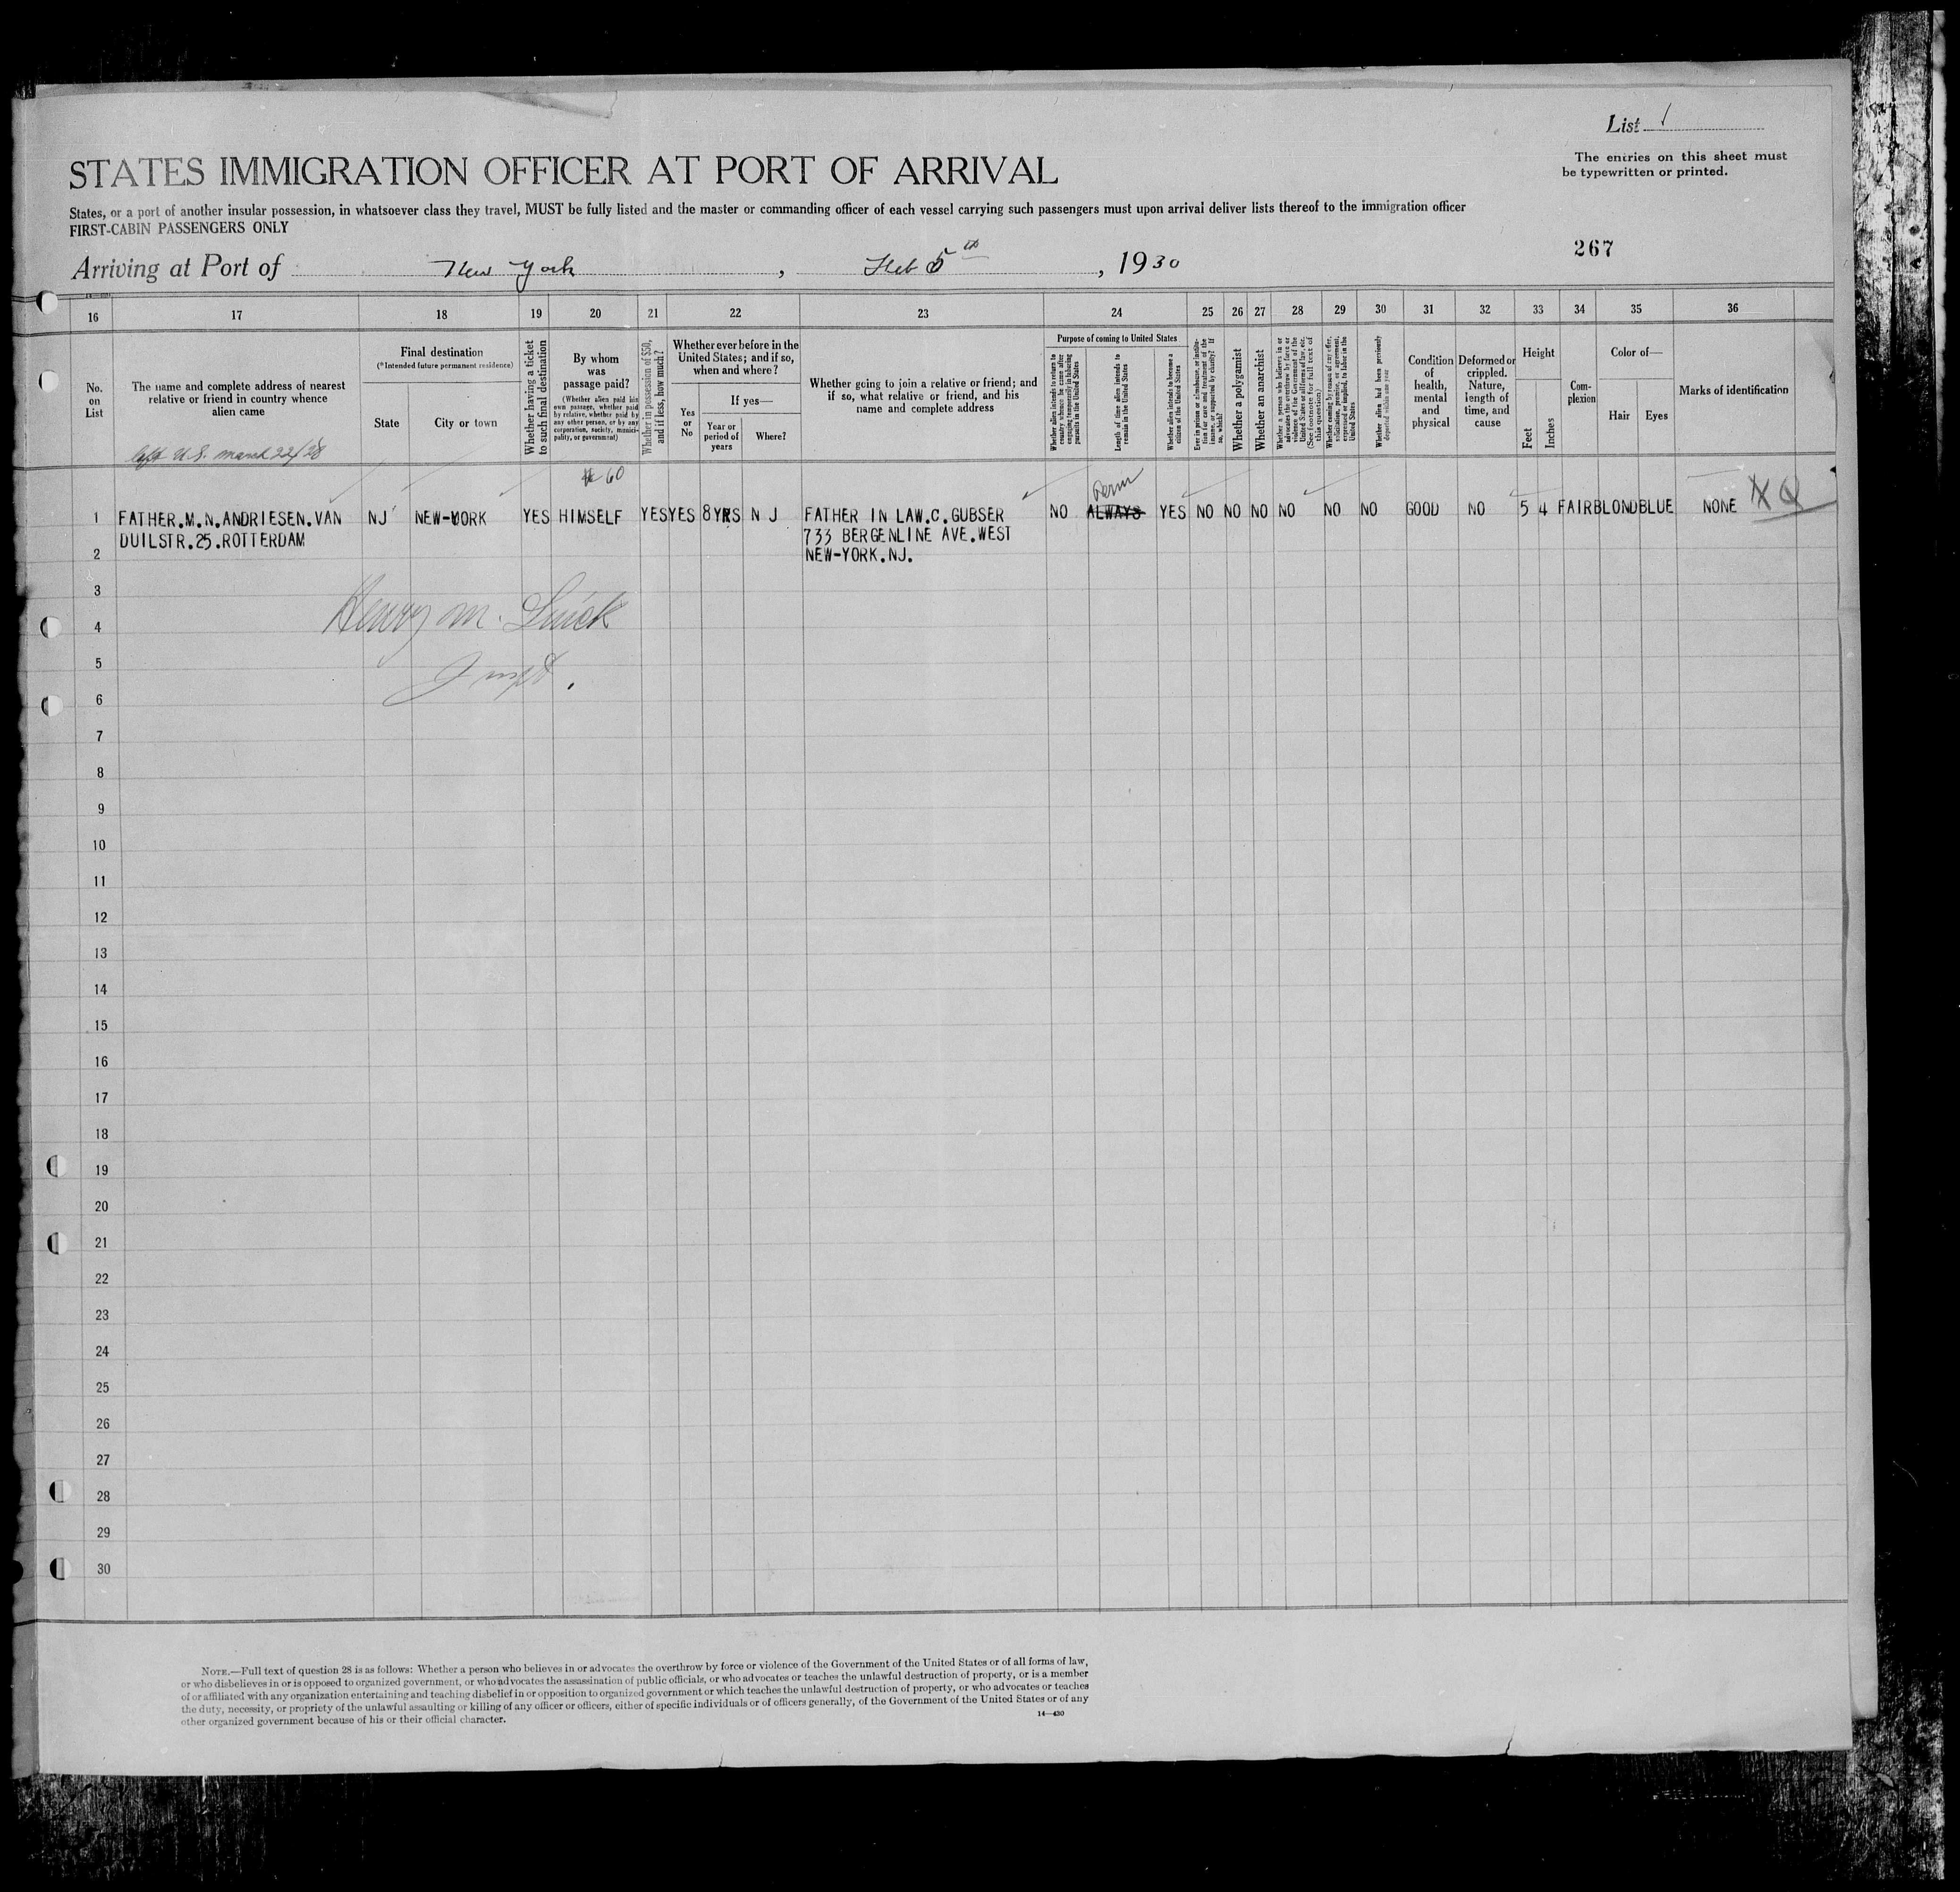 List 1
The entries on this sheet must
be typewritten or printed.
STATES IMMIGRATION OFFICER AT PORT OF ARRIVAL
States, or a port of another insular possession, in whatsoever class they travel, MUST be fully listed and the master or commanding officer of each vessel carrying such passengers must upon arrival deliver lists thereof to the immigration officer
FIRST-CABIN PASSENGERS ONLY
267
Arriving at Port of New York, Feb 5th, 1930
16 17 18 19 20 21 22 23 24 25 26 27 28 29 30 31 32 33 34 35 36
No.
on
List
The name and complete address of nearest
relative or friend in country whence
alien came
left U.S. march 22/28
Final destination
(*Intended future permanent residence)
State
City or town
Whether having a ticket
to such final destination
By whom
was
passage paid?
(Whether alien paid his
own passage, whether paid
by relative, whether paid by
any other person, or by any
corporation, society, munici-
pality, or government)
Whether in possession of $50,
and if less, how much?
Whether ever before in the
United States; and if so,
when and where?
Yes
or
No
If yes—
Year or
period of
years
Where?
Whether going to join a relative or friend; and
if so, what relative or friend, and his
name and complete address
Purpose of coming to United States
Whether alien intends to return to
country whence he came after
engaging temporarily in laboring
pursuits in the United States
Length of time alien intends to
remain in the United States
Whether alien intends to become a
citizen of the United States
Ever in prison or almshouse, or institu-
tion for care and treatment of the
insane, or supported by charity? If
so, which?
Whether a polygamist
Whether an anarchist
Whether a person who believes in or
advocates the overthrow by force or
violence of the Government of the
United States or all forms of law, etc.
(See footnote for full text of
this question)
Whether coming by reason of any offer,
solicitation, promise, or agreement,
expressed or implied, to labor in the
United States
Whether alien had been previously
deported within one year
Condition
of
health,
mental
and
physical
Deformed or
crippled.
Nature,
length of
time, and
cause
Height
Feet
Inches
Com-
plexion
Color of—
Hair
Eyes
Marks of identification
60
Perm
1 FATHER.M.N.ANDRIESEN.VAN NJ NEW-YORK YES HIMSELF YES YES 8YRS N J FATHER IN LAW.C.GUBSER NO ALWAYS YES NO NO NO NO NO NO GOOD NO 5 4 FAIR BLOND BLUE NONE
DUILSTR.25.ROTTERDAM 733 BERGENLINE AVE.WEST
2 NEW-YORK.NJ.
3
Henry M.
4
5
6
7
8
9
10
11
12
13
14
15
16
17
18
19
20
21
22
23
24
25
26
27
28
29
30
NOTE.—Full text of question 28 is as follows: Whether a person who believes in or advocates the overthrow by force or violence of the Government of the United States or of all forms of law,
or who disbelieves in or is opposed to organized government, or who advocates the assassination of public officials, or who advocates or teaches the unlawful destruction of property, or is a member
of or affiliated with any organization entertaining and teaching disbelief in or opposition to organized government or which teaches the unlawful destruction of property, or who advocates or teaches
the duty, necessity, or propriety of the unlawful assaulting or killing of any officer or officers, either of specific individuals or of officers generally, of the Government of the United States or of any
other organized government because of his or their official character.
14—430